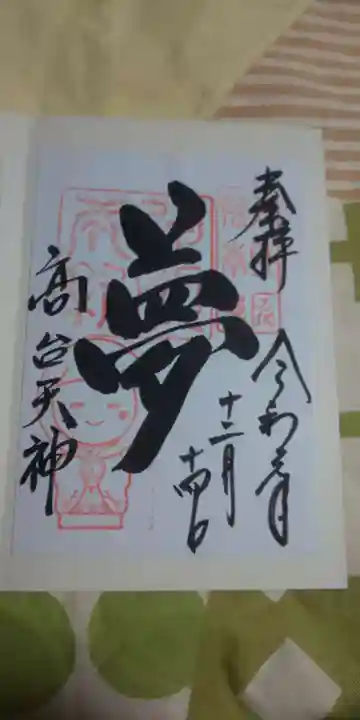 奉拝
令和元年
十二月
十四日
夢
高台天神